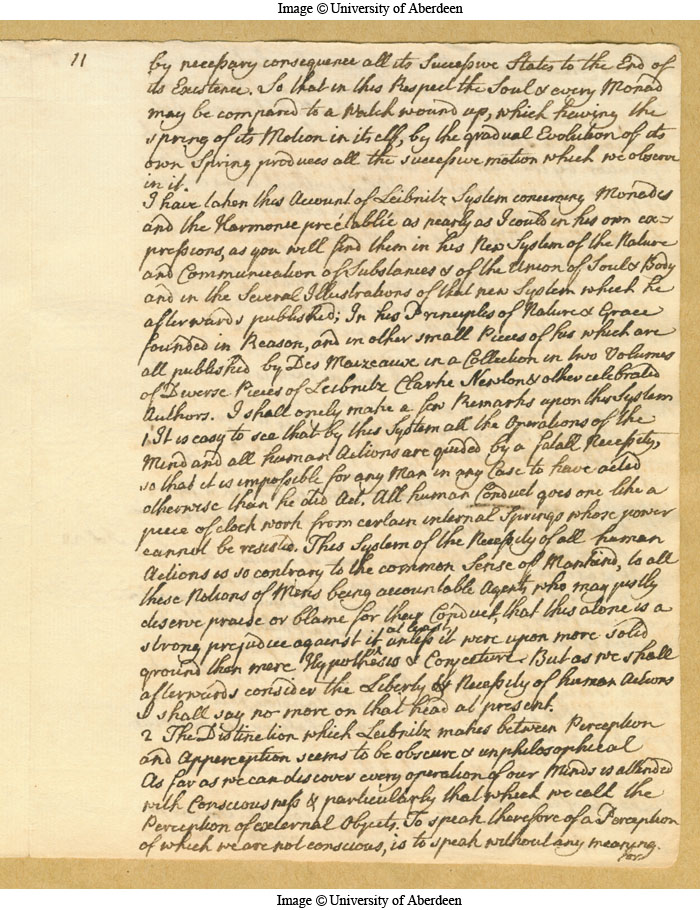 Image © University of Aberdeen
11
by necessary consequence all its Successive States to the End of
its Existence. So that in this Respect the Soul & every Monad
may be compared to a Watch wound up, which having the
spring of its Motion in itself, by the gradual Evolution of its
own Spring produces all the successive motion which we observe
in it.
I have taken this Account of Leibnitz System concerning Monades
and the Harmonie preétablie as nearly as I could in his own ex=
pressions, as you will find them in his New System of the Nature
and Communication of Substances & of the Union of Soul & Body
and in the Several Illustrations of that new System which he
afterwards published; In his Principles of Nature & Grace
founded in Reason, and in other small Pieces of his which are
all published by Des Maizeaux in a Collection in two Volumes
of Diverse Pieces of Leibnitz Clarke Newton & other celebrated
Authors. I shall onely make a few Remarks upon this System
1 It is easy to see that by this System all the Operations of the
Mind and all human Actions are guided by a fatall Necessity,
so that it is impossible for any Man in any Case to have acted
otherwise than he did Act. All human Conduct goes one like a
piece of clock work from certain internal Springs whose power
cannot be resisted. This System of the Necessity of all human
Actions is so contrary to the common Sense of Mankind, to all
these Notions of Mens being accountable Agents, who may justly
deserve praide or blame for their Conduct, that this alone is a
strong prejudice against it at least, unless it were upon more solid
ground then mere Hypothesis & Conjecture. But as we shall
afterwards consider the Liberty & Necessity of human Actions
I shall say no more on that head at present.
2 The Distinction which Leibnitz makes between Perception
and Apperception seems to be obscure & unphilosophical
As far as we can discover every operation of our Minds is attended
with Consciousness & particularly that which we call the
Perception of external Objects. To speak therefore of a Perception
of which we are not conscious, is to speak without any meaning.
for
Image © University of Aberdeen